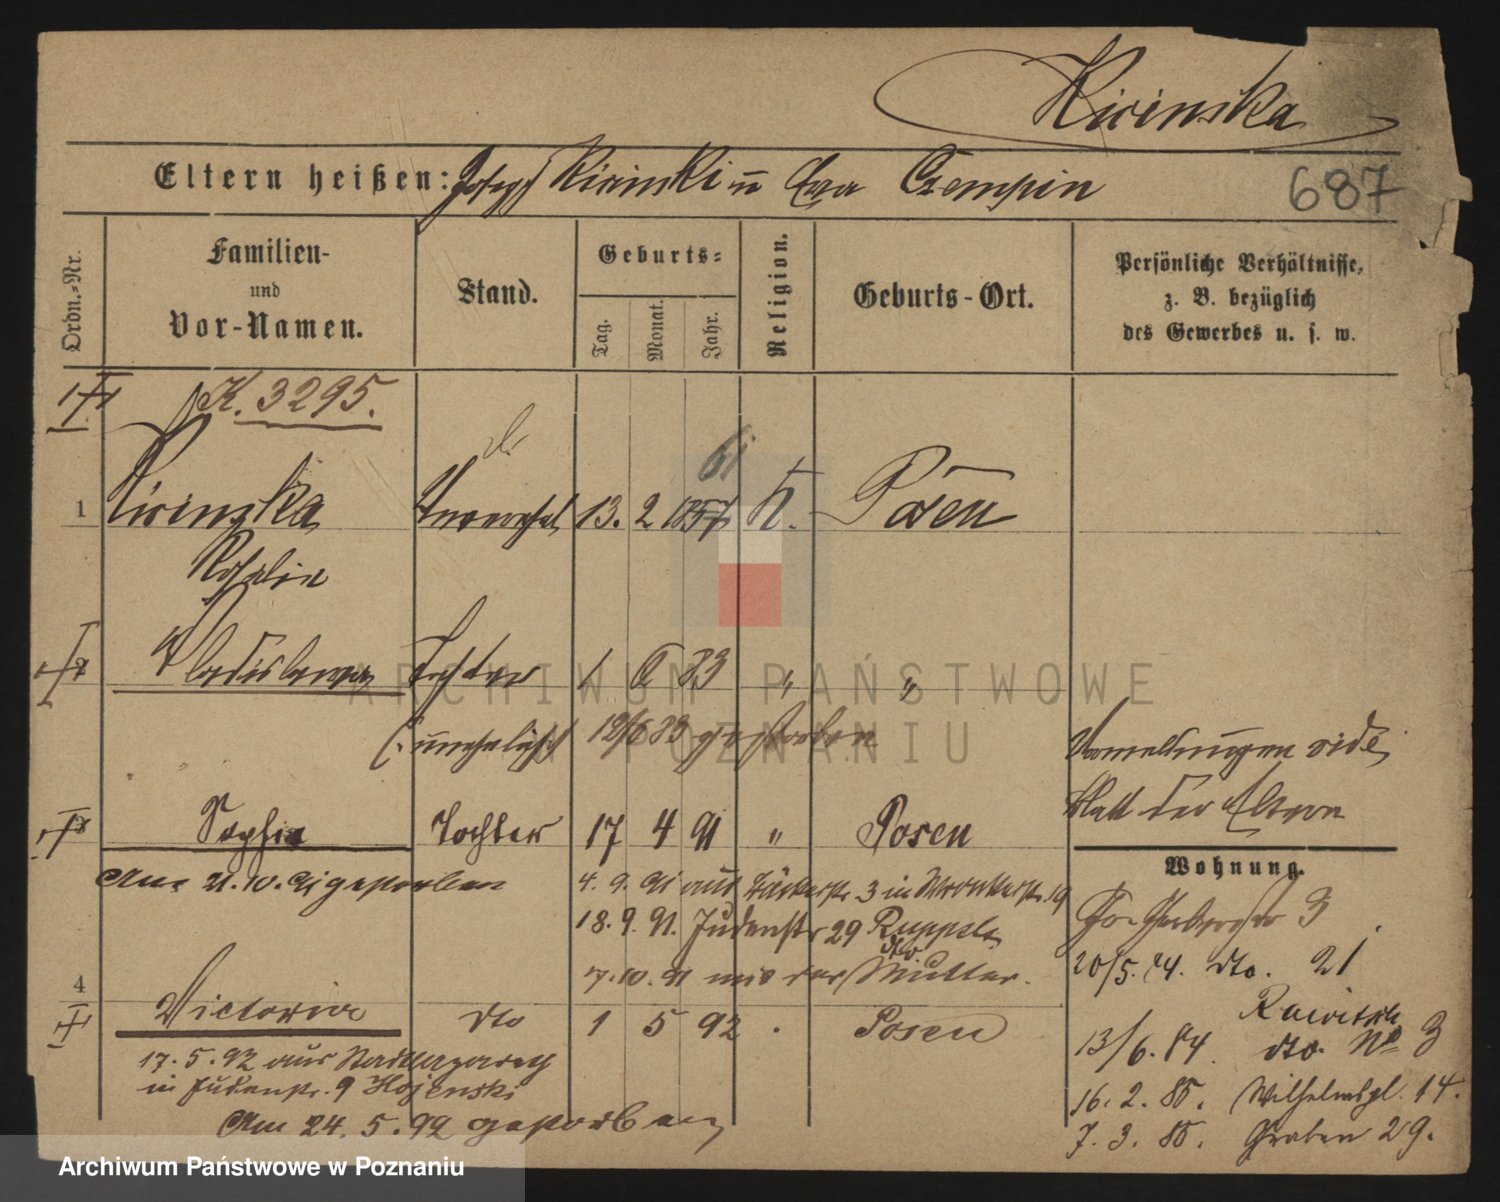 Kirinska
Eltern heißen: Joseph Kirinski u Eva Czempin
687
Ordn.-Nr.
Familien-
und
Vor-Namen.
Stand.
Geburts-
Tag.
Monat.
Jahr.
Religion.
Geburts-Ort.
Persönliche Verhältnisse,
z. B. bezüglich
des Gewerbes u. s. w.
K. 3295.
61
1 Kirinska Unverehel 13. 2 1857 K. Posen
Rosalie
2 Wladislawa Tochter 83 " "
(unehelich 12/6 83 gestorben
Anmeldungen vide
Blatt der Eltern
3 Sophie Tochter 17 4 91 " Posen
Wohnung.
Am 21.10.91 gestorben
4. 9. 91 aus Bäckerstr. 3 in Wronkerstr. 19
18. 9. 91. Judenstr 29 Ruppels
7. 10. 91 mit der Mutter.
Gerberstr 3
20/5. 84. dto. 21
4 Victoria dto 1 5 92 . Posen
Rawitsch
13/6. 84. dto. No 3
17. 5. 92 aus Stadtlazareth
in Judenstr. 9 Hojenski
Am 24. 5. 92 gestorben
16. 2. 85. Wilhelmspl. 14.
7. 3. 85. Graben 29.
ARCHIWUM PAŃSTWOWE
W POZNANIU
Archiwum Państwowe w Poznaniu